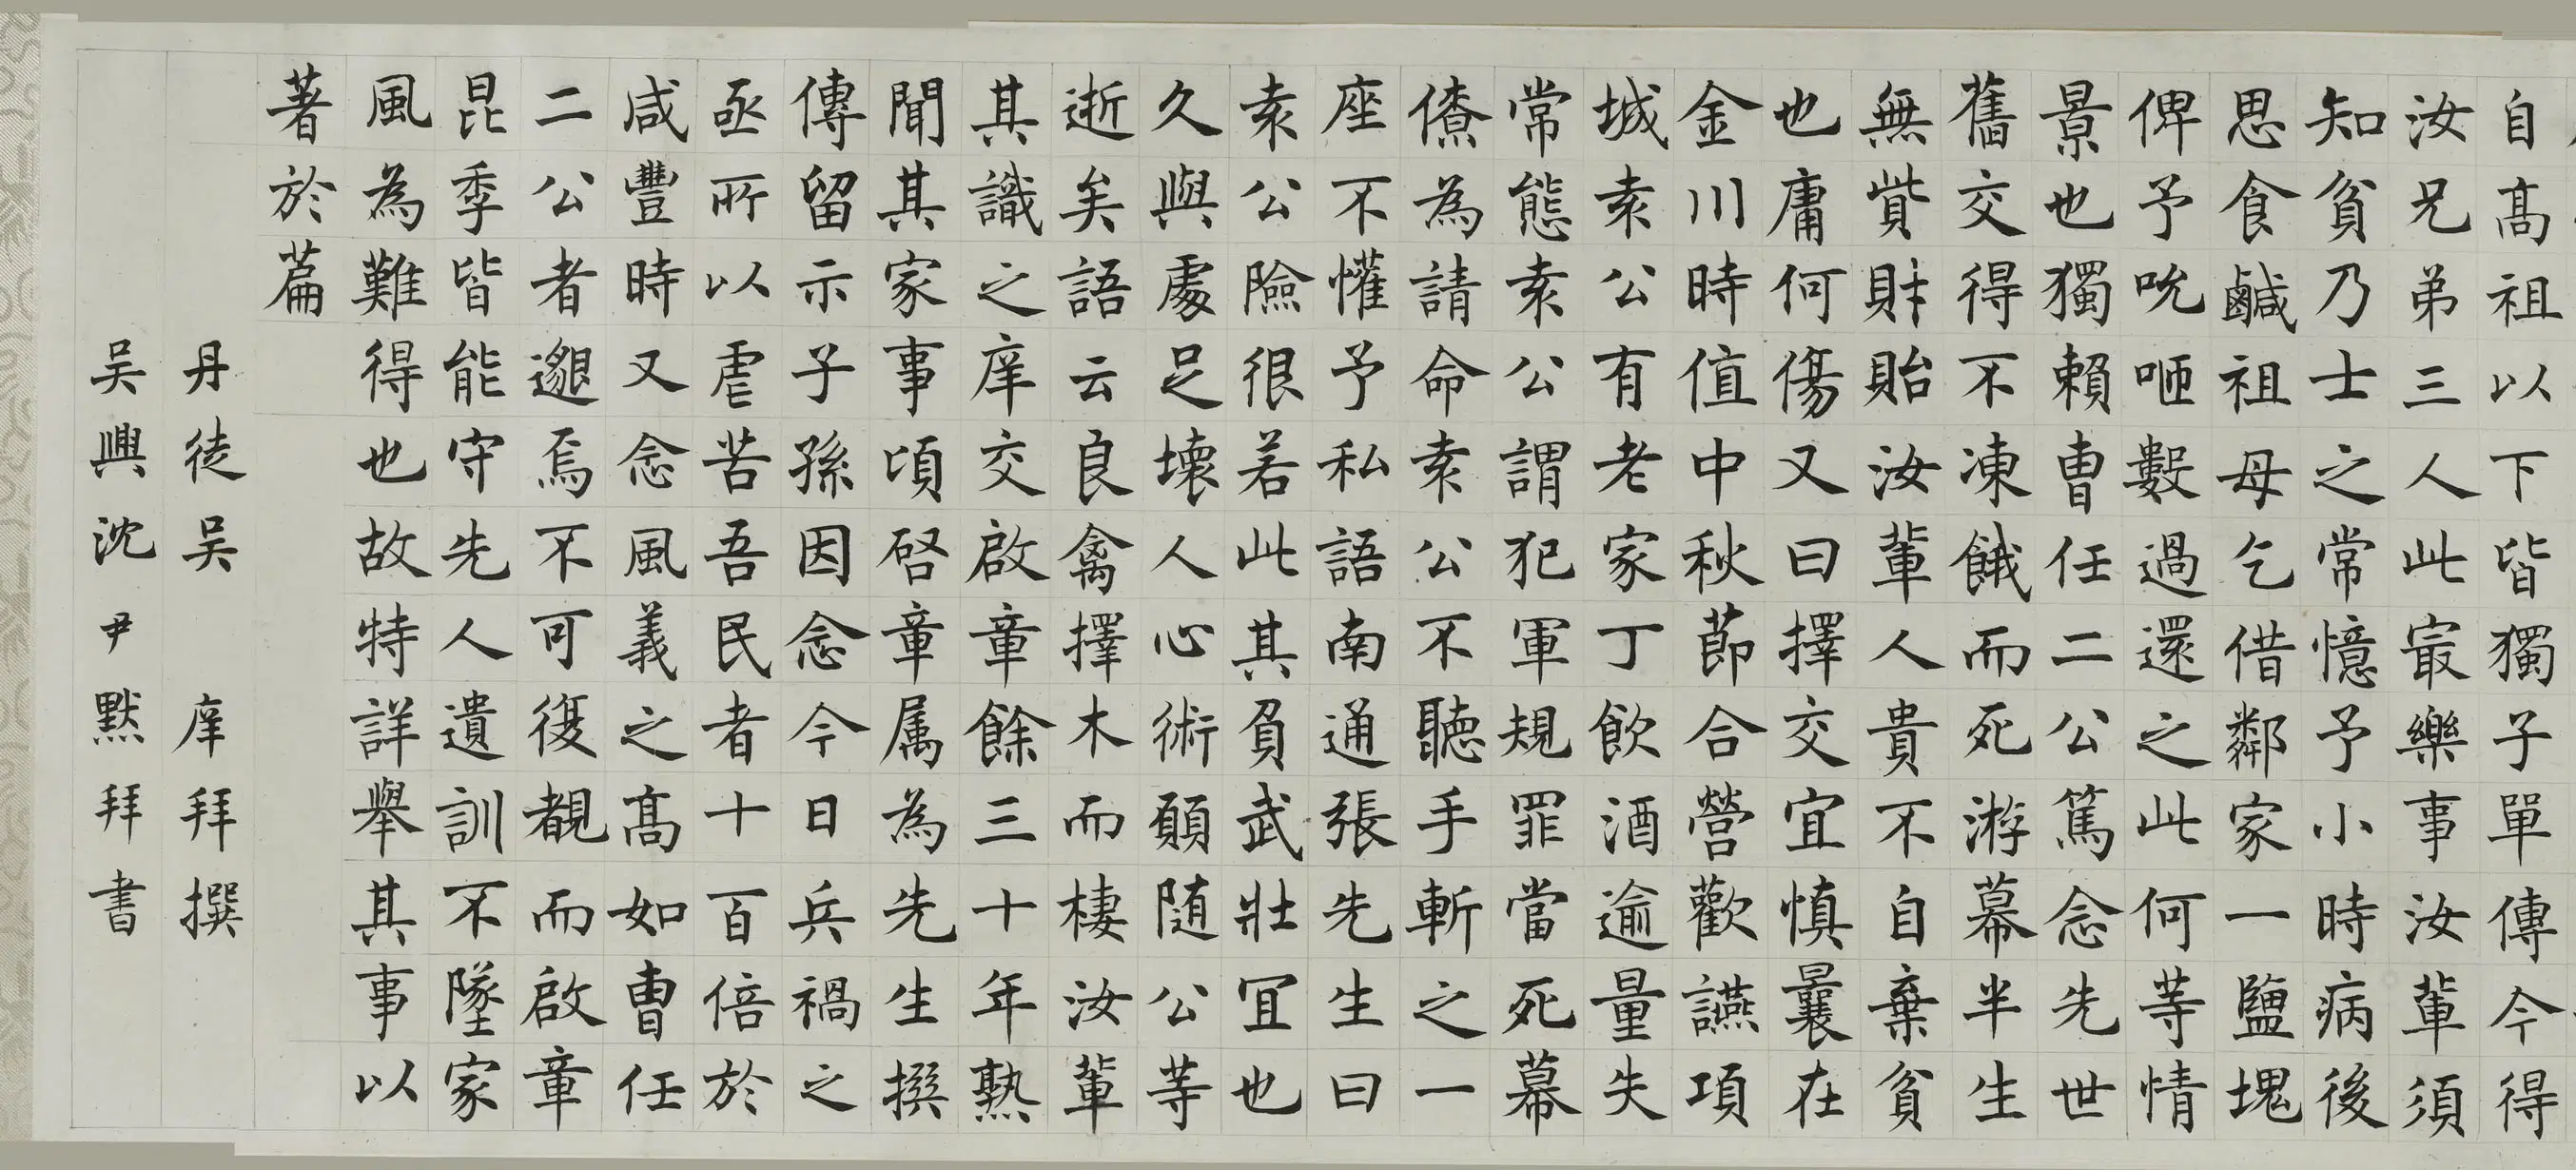 自高祖以下皆獨子單傳今得
汝兄弟三人此寂樂事汝輩須
知貧乃士之常憶予小時病後
思食鹹祖母乞借鄰家一鹽塊
俾予吮咂數過還之此何等情
景也獨賴曹任二公篤念先世
舊交得不凍餓而死游幕半生
無貲財貽汝輩人貴不自棄貧
也庸何傷又曰擇交宜慎曩在
金川時值中秋節合營歡讌項
城袁公有老家丁飲酒逾量失
常態袁公謂犯軍規罪當死幕
僚為請命袁公不聽手斬之一
座不懽予私語南通張先生曰
袁公險很若此其負武壯宜也
久與處足壞人心術願随公等
逝矣語云良禽擇木而棲汝輩
其識之庠交啟章餘三十年熟
聞其家事頃啓章属為先生撰
傳留示子孫因念今日兵禍之
亟所以虐苦吾民者十百倍於
咸豐時又念風義之高如曹任
二公者邈焉不可復覩而啟章
昆季皆能守先人遺訓不墜家
風為難得也故特詳舉其事以
著於篇
丹徒吴庠拜撰
吴興沈尹默拜書